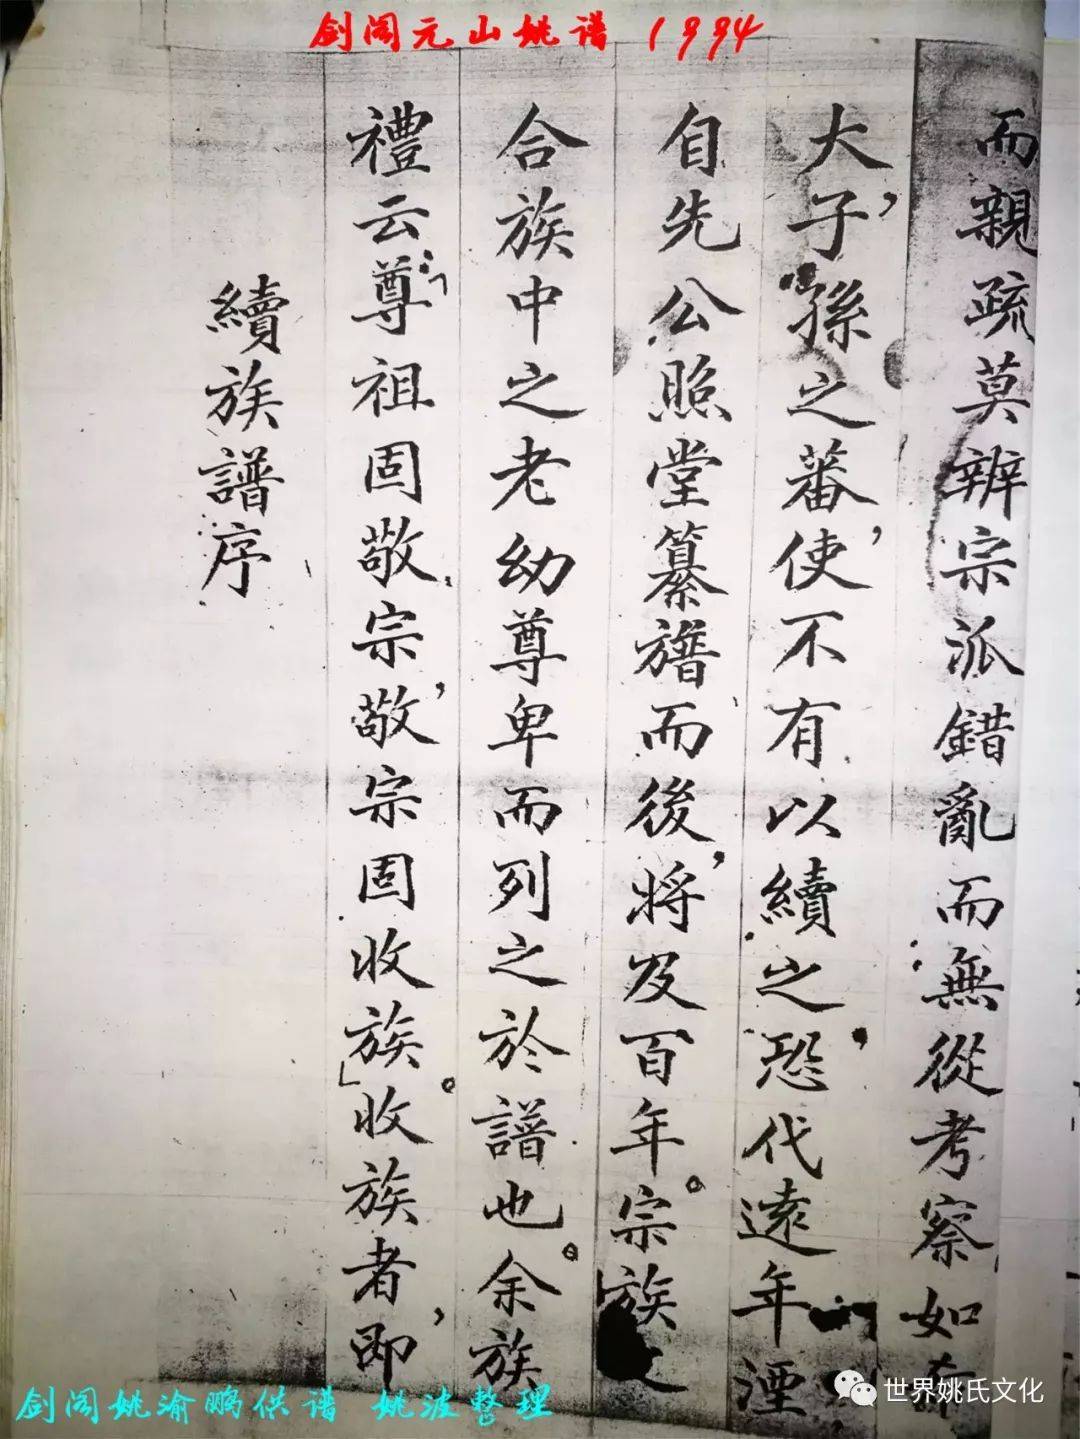 剑阁元山姚谱 1994
續族譜序
禮云：「尊祖固敬宗，敬宗固收族」。收族者，即
合族中之老幼尊卑而列之於譜也。余族
自先公照堂纂譜而後，將及百年。宗族之
大，子孫之蕃，使不有以續之，恐代遠年湮
而親疏莫辨宗派錯亂而無從考察如
剑阁姚渝鹏供谱 姚波整理
世界姚氏文化